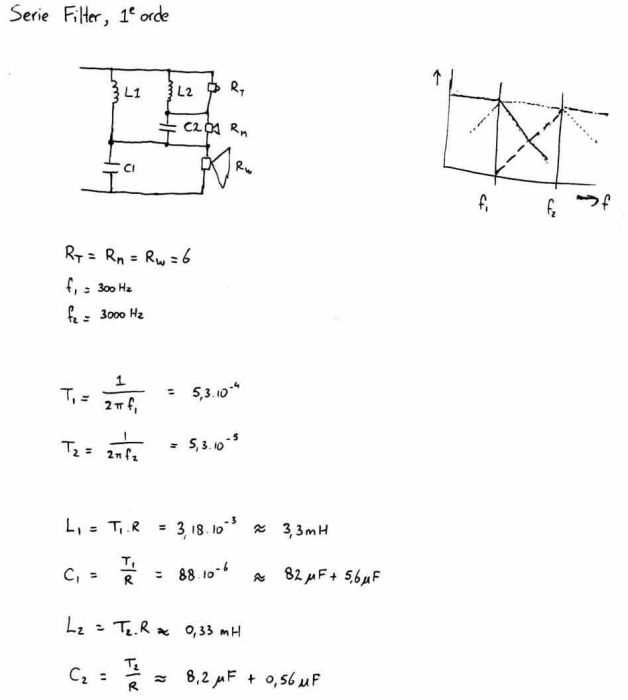 Serie Filter, 1e orde
L1 L2 RT
C2 Rm
C1 Rw
f1 f2 → f
RT = Rm = Rw = 6
f1 = 300 Hz
f2 = 3000 Hz
T1 = 1 / 2π f1 = 5,3.10^-4
T2 = 1 / 2π f2 = 5,3.10^-5
L1 = T1.R = 3,18.10^-3 ≈ 3,3 mH
C1 = T1 / R = 88.10^-6 ≈ 82 μF + 5,6 μF
L2 = T2.R ≈ 0,33 mH
C2 = T2 / R ≈ 8,2 μF + 0,56 μF